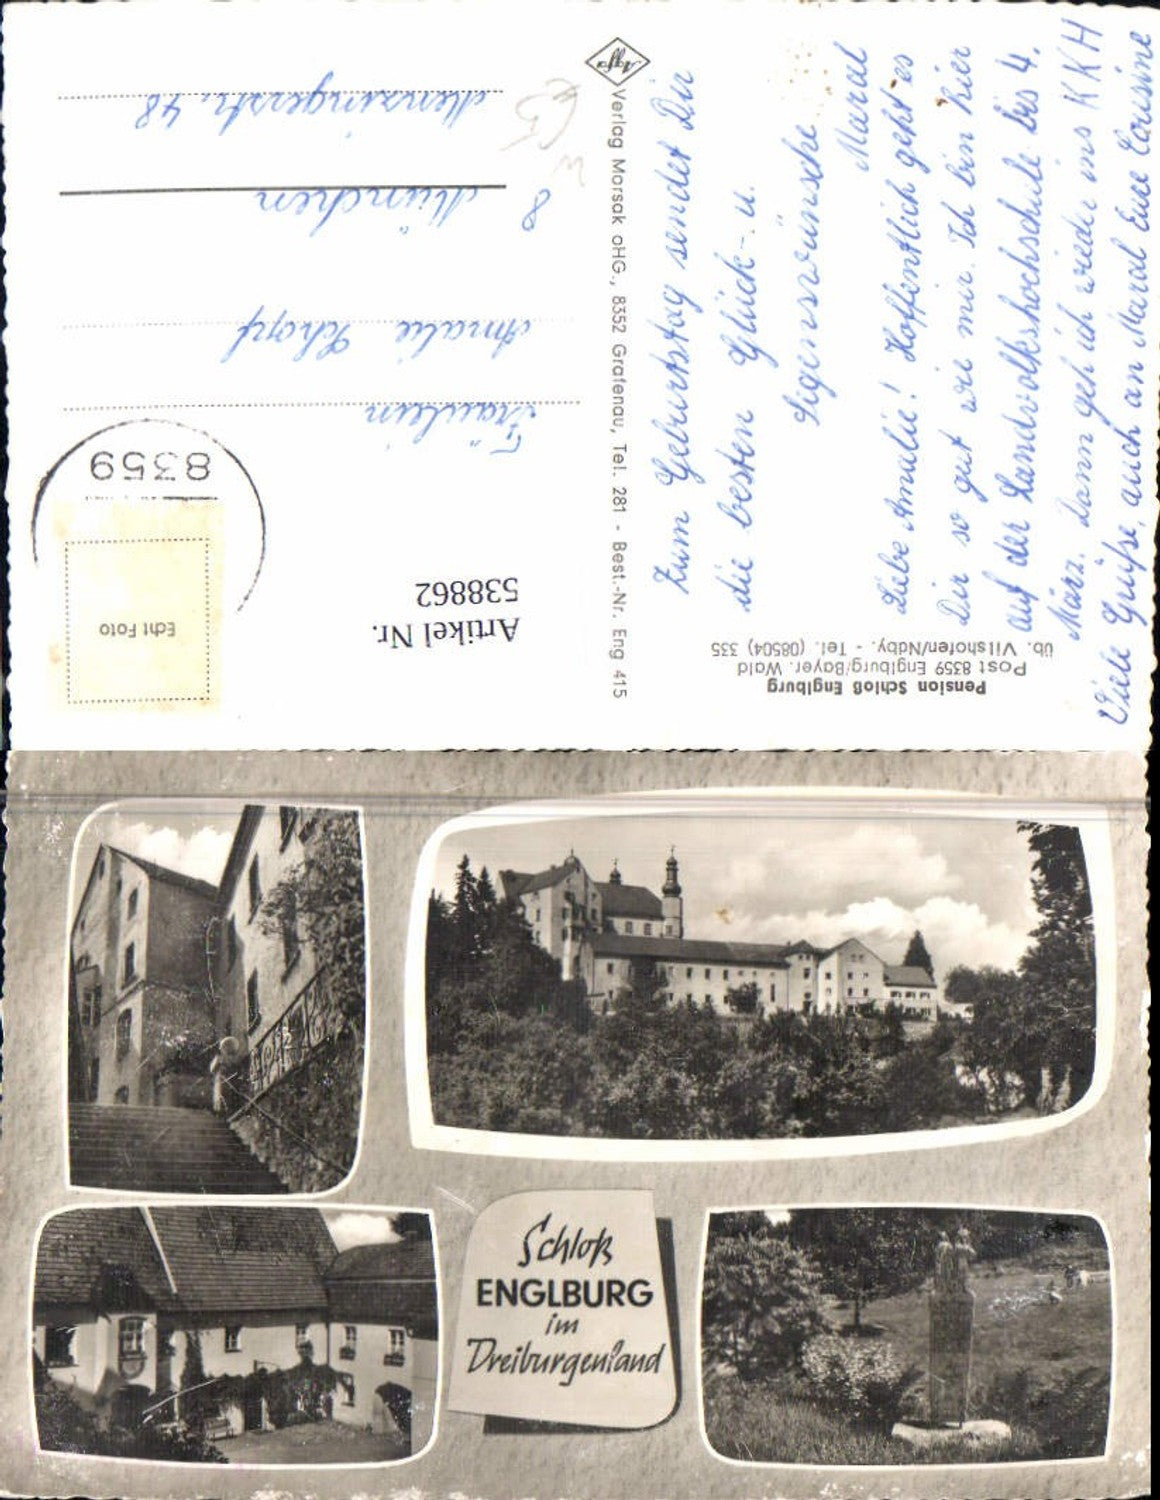 Pension Schloß Englburg
Post 8359 Englburg/Bayer. Wald
üb. Vilshofen/Ndby. - Tel. (08504) 335
Zum Geburtstag sendet Dir
die besten Glück- u.
Segenswünsche
Maral
Liebe Amalie! Hoffentlich geht es
Dir so gut wie mir. Ich bin hier
auf der Landvolkshochschule bis 4.
März. Dann geh ich wieder ins KKH
Viele Grüße, auch an Maral Eure Cousine
Agfa
Verlag Morsak oHG., 8352 Grafenau, Tel. 281 - Best.-Nr. Eng 415
Artikel Nr.
538862
Echt Foto
8359
Fräulein
Amalie Schopf
8 München
Menzingerstr. 48
Schloß
ENGLBURG
im
Dreiburgenland